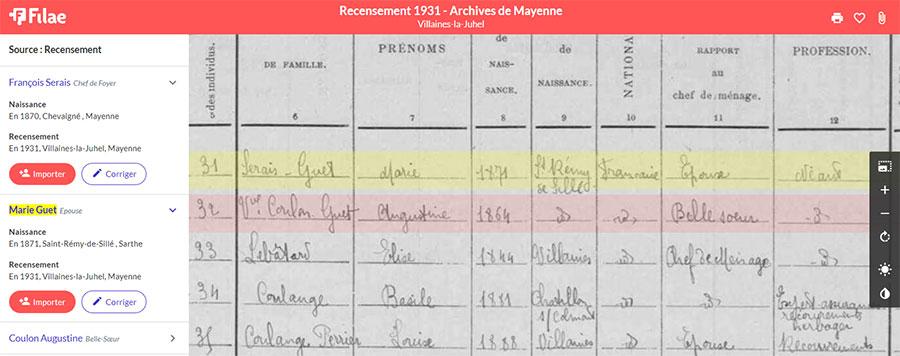 Filae
Recensement 1931 - Archives de Mayenne
Villaines-la-Juhel
Source : Recensement
François Serais Chef de Foyer
Naissance
En 1870, Chevaigné , Mayenne
Recensement
En 1931, Villaines-la-Juhel, Mayenne
Importer
Corriger
Marie Guet Epouse
Naissance
En 1871, Saint-Rémy-de-Sillé , Sarthe
Recensement
En 1931, Villaines-la-Juhel, Mayenne
Importer
Corriger
Coulon Augustine Belle-Sœur
des individus.
DE FAMILLE.
PRÉNOMS
de
NAIS-
SANCE.
de
NAISSANCE.
NATIONAL
RAPPORT
au
chef de ménage.
PROFESSION.
6 7 8 9 10 11 12
31 Serais - Guet Marie 1871 St Rémy de Sillé Française Epouse Néant
32 Vve Coulon Guet Augustine 1864 Belle soeur
33 Lebâtard Elise 1844 Villaines Chef de Ménage
34 Coulange Basile 1881 Chatillon s/Colmont
recouvrements
herbager
35 Coulange Perrier Louise 1888 Villaines Epouse Recouvrements